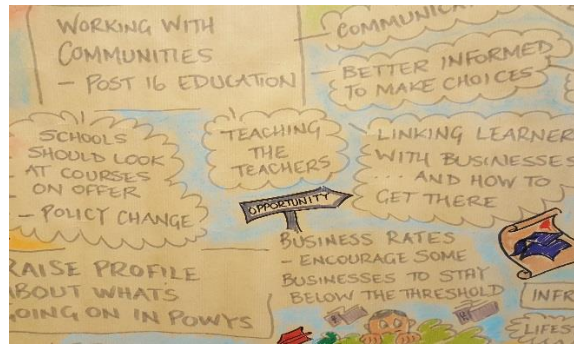 WORKING WITH
COMMUNITIES
- POST 16 EDUCATION
BETTER INFORMED
TO MAKE CHOICES
SCHOOLS
SHOULD LOOK
AT COURSES
ON OFFER
- POLICY CHANGE
TEACHING
THE
TEACHERS
LINKING LEARNER
WITH BUSINESSES
... AND HOW TO
GET THERE
OPPORTUNITY
BUSINESS RATES
- ENCOURAGE SOME
BUSINESSES TO STAY
BELOW THE THRESHOLD
RAISE PROFILE
ABOUT WHAT'S
GOING ON IN POWYS